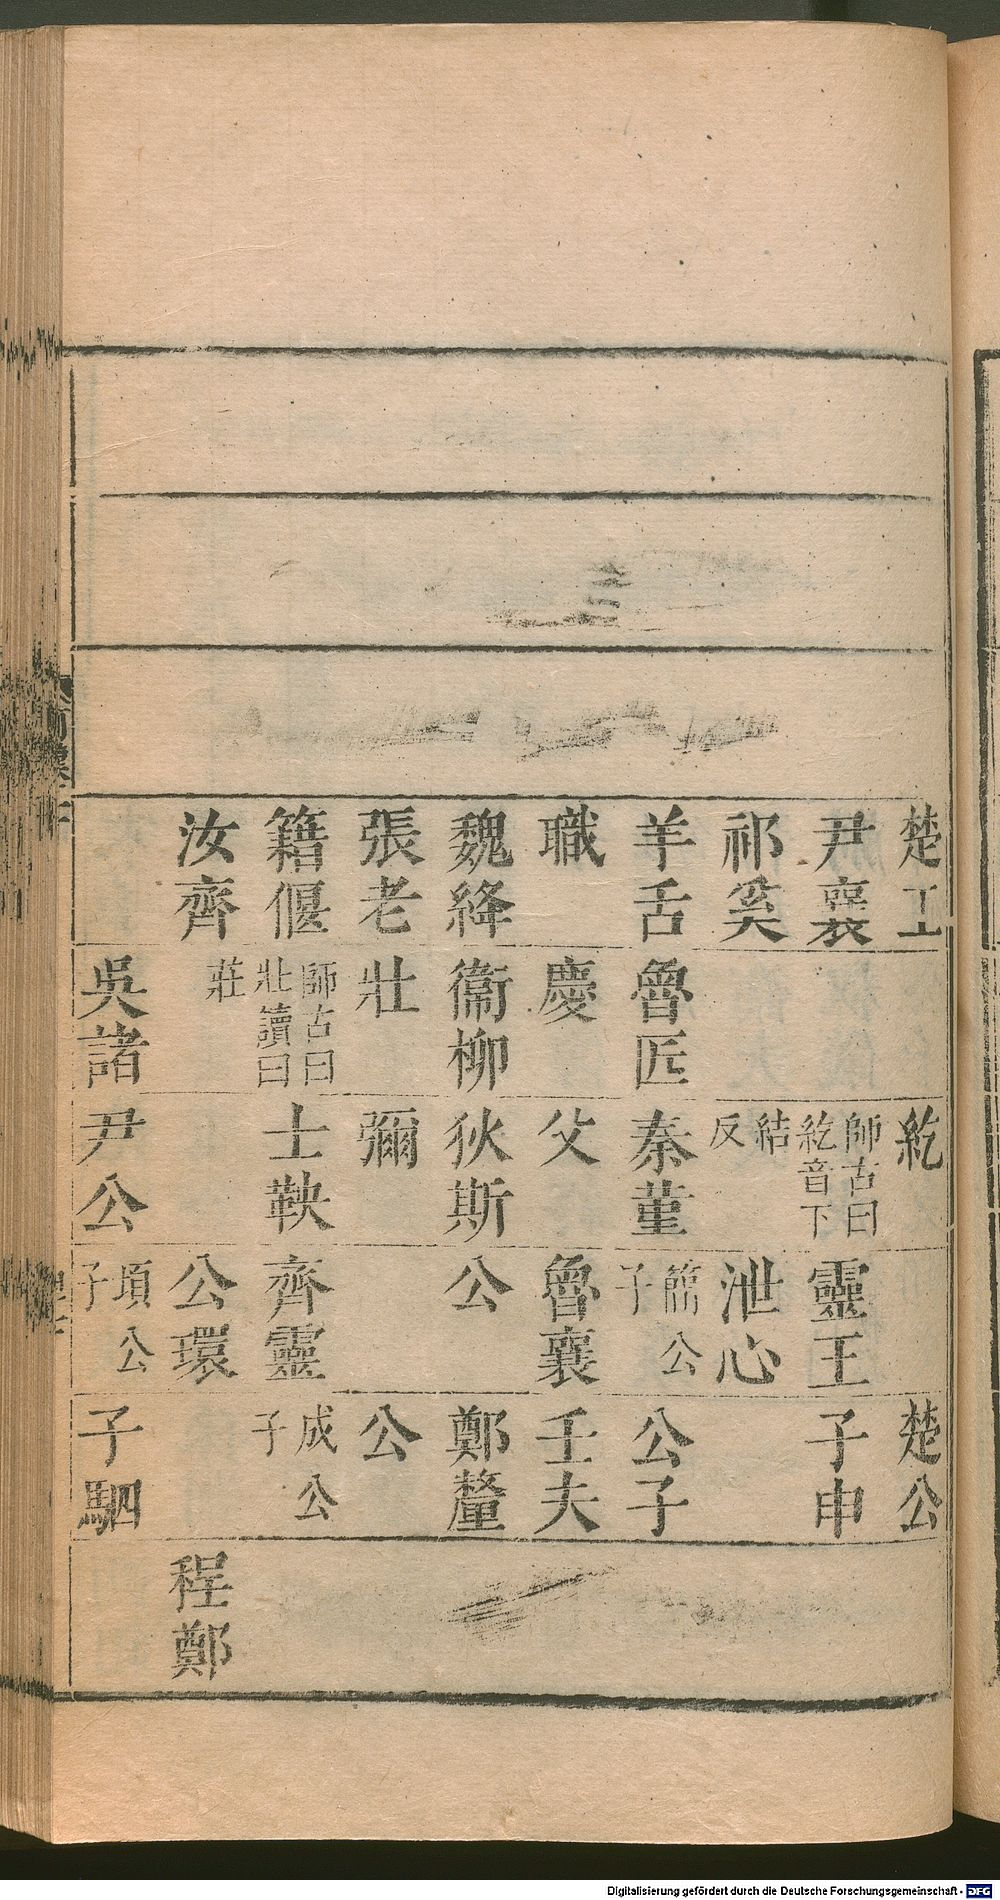 楚工
尹襄
祁奚
羊舌
職
魏絳
張老
籍偃
汝齊
魯匠
慶
衞柳
壯
師古曰
壯讀曰
莊
吳諸
紇
師古曰
紇音下
結
反
秦菫
父
狄斯
彌
士鞅
尹公
靈王
泄心
簡公
子
魯襄
公
齊靈
公環
頃公
子
楚公
子申
公子
壬夫
鄭釐
公
成公
子
子駟
程鄭
Digitalisierung gefördert durch die Deutsche Forschungsgemeinschaft - DFG